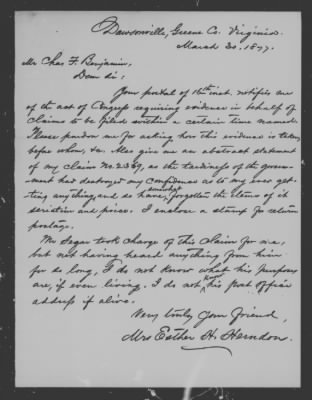 Dawsonville, Greene Co. Virginia.
March 30. 1877.
Mr Chas F. Benjamin,
Dear Sir:
Your postal of 16th inst. notifies me
of the act of Congress requiring evidence in behalf of
claims to be filed within a certain time named.
Please pardon me for asking how this evidence is taken,
before whom, &c. Also give me an abstract statement
of my claim No. 2369, as the tardiness of the govern-
ment had destroyed my confidence as to my ever get-
ting anything, and so have somewhat forgotten the items of it
seriatim and price. I enclose a stamp for return
postage.
Mr Segar took charge of this claim for me,
but not having heard anything from him
for so long, I do not know what his purposes
are, if even living. I do not know his post office
address if alive.
Very truly Your friend,
Mrs Esther H. Herndon.